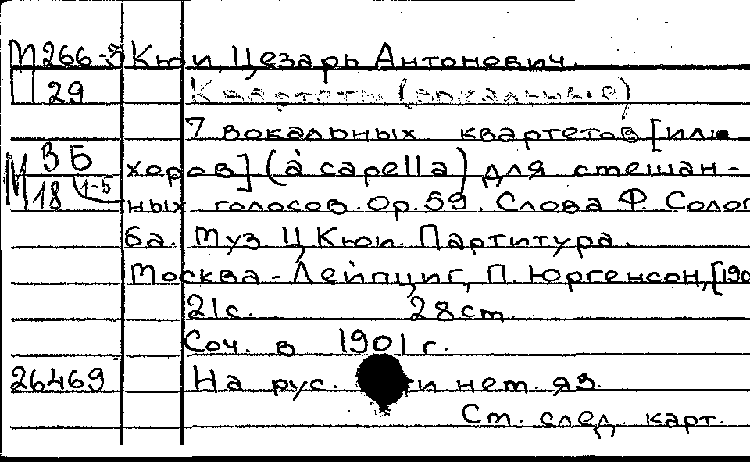 М266-3 Кюи, Цезарь Антонович.
29 Квартеты (вокальные)
7 вокальных квартетов [или
ВБ хоров] (à capella) для смешан-
М 18 4-Б ных голосов. Op. 59. Слова Ф. Солог
ба. Муз. Ц. Кюи. Партитура.
Москва - Лейпциг, П. Юргенсон, [190
21с. 28см.
Соч. в 1901 г.
26469 На рус. и нем. яз.
См. след. карт.